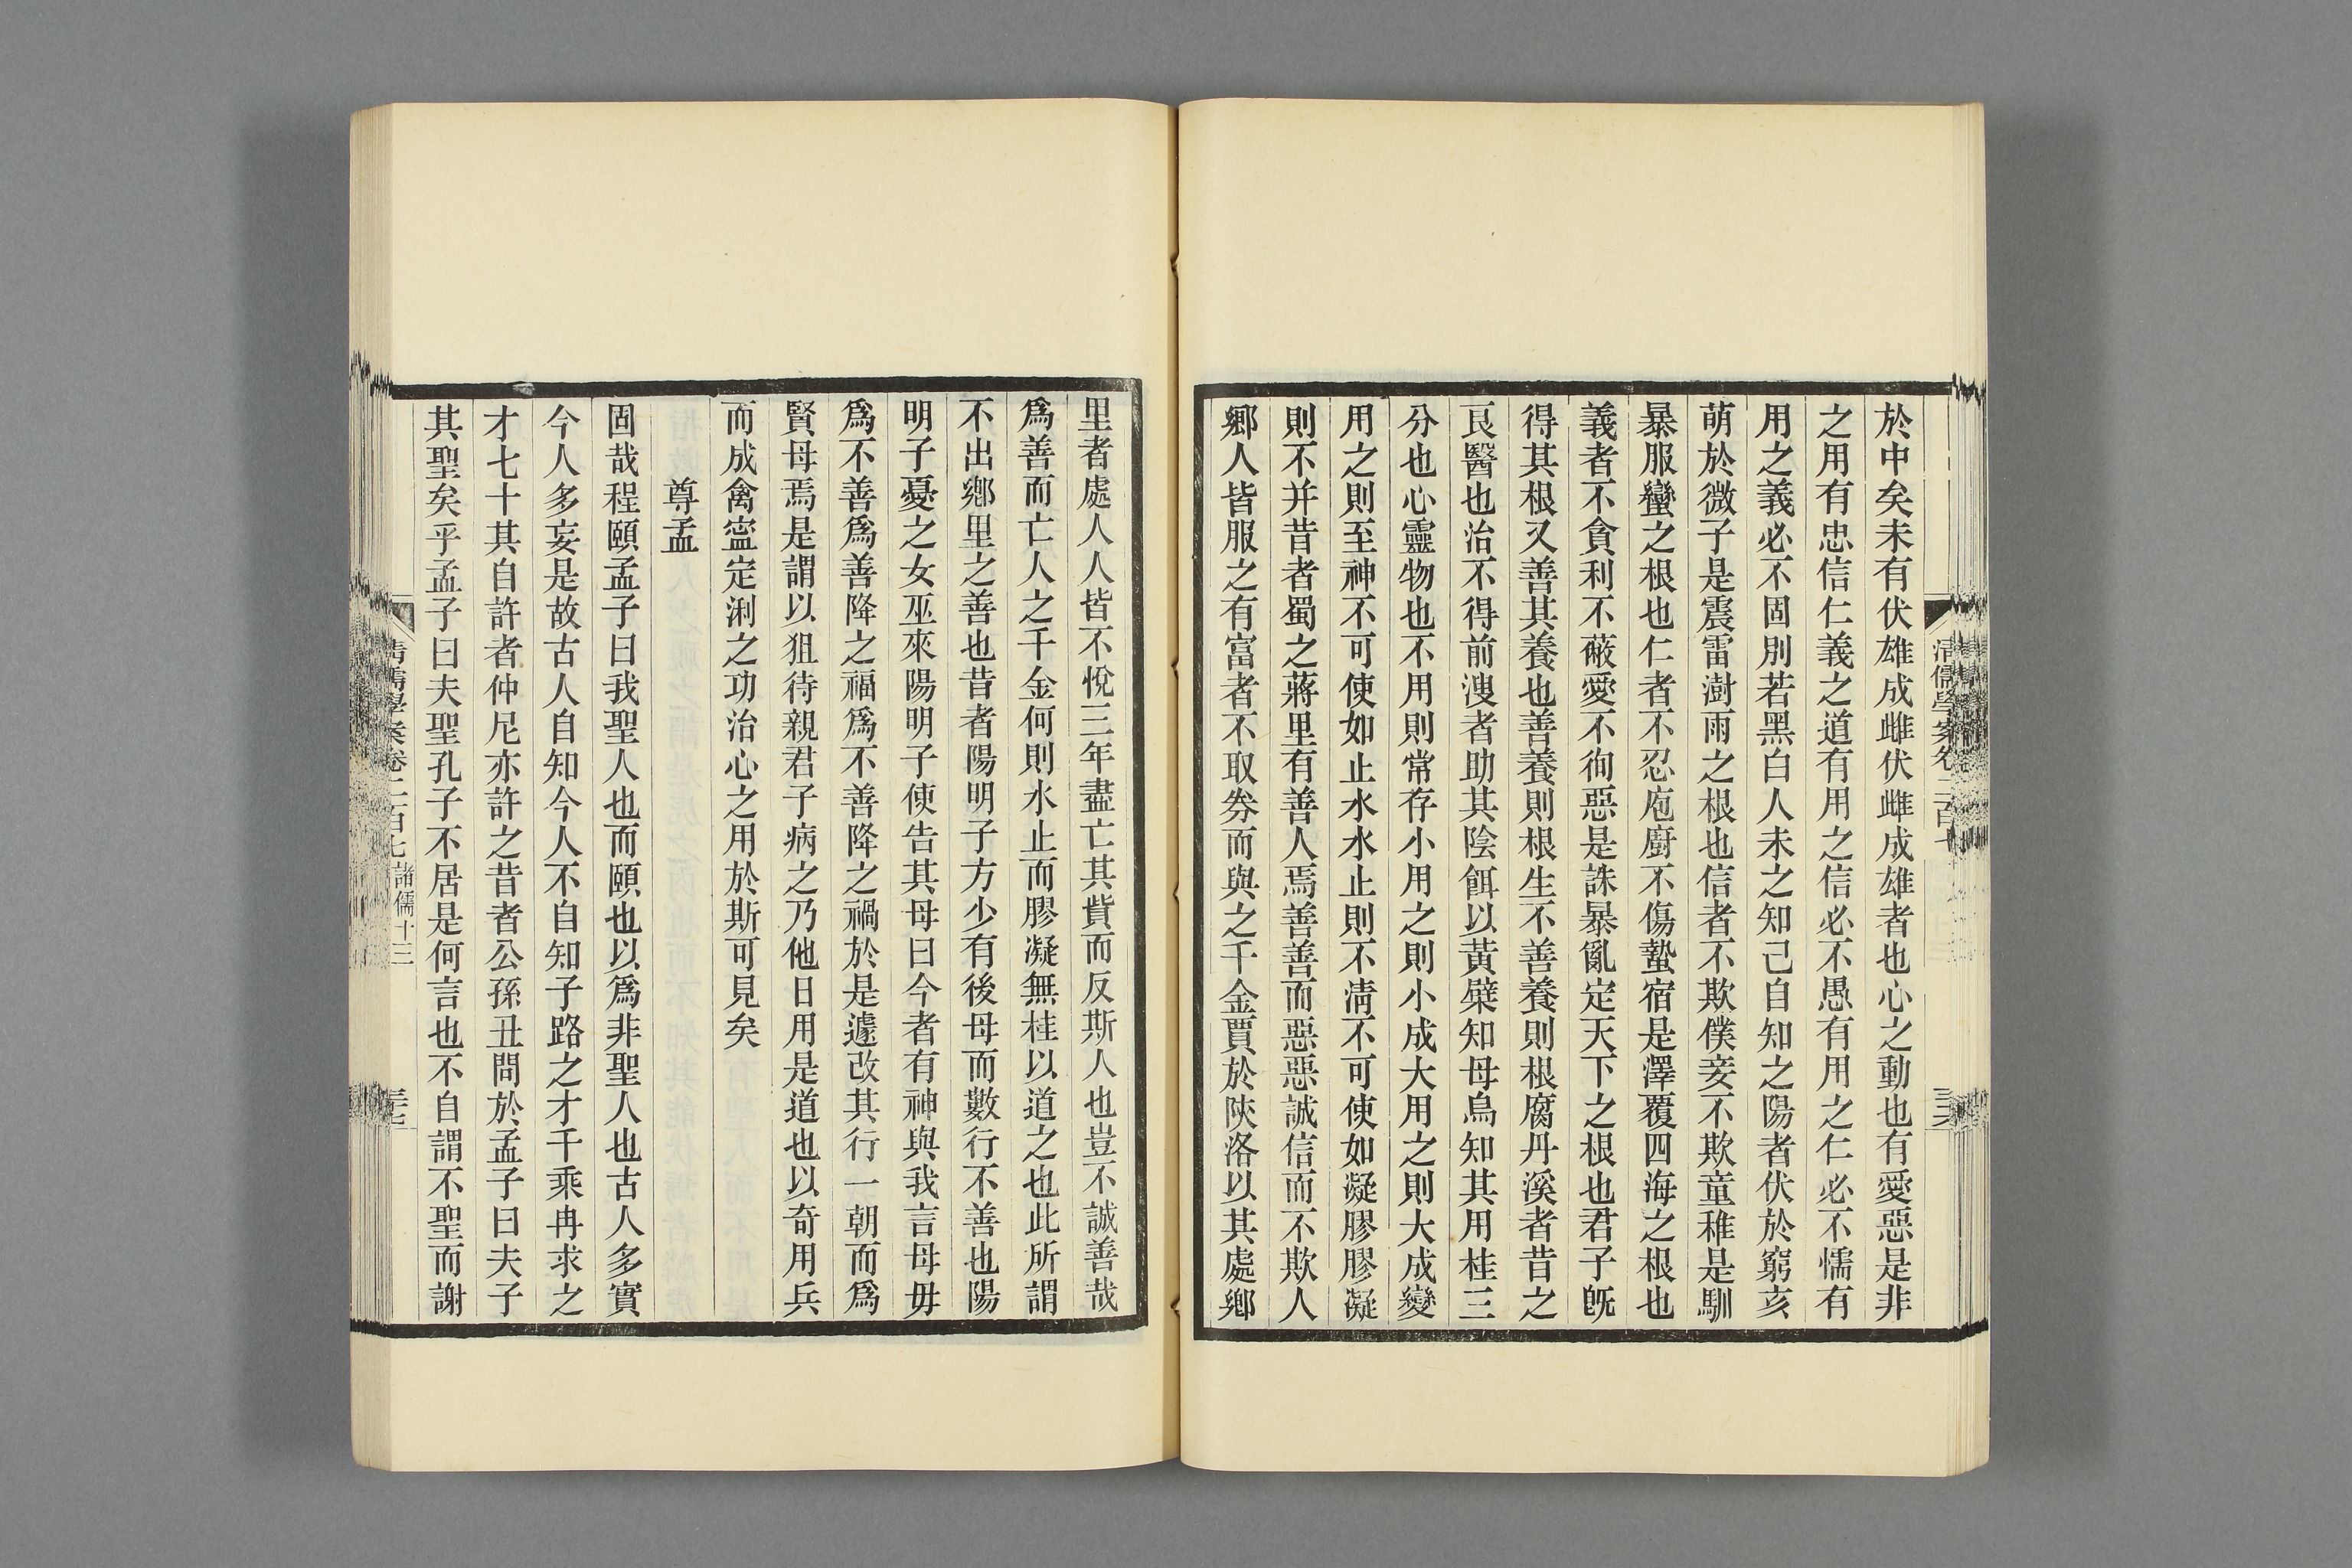 清儒學案卷二百七
三六
於中矣未有伏雄成雌伏雌成雄者也心之動也有愛惡是非
之用有忠信仁義之道有用之信必不愚有用之仁必不懦有
用之義必不固別若黑白人未之知己自知之陽者伏於窮亥
萌於微子是震雷澍雨之根也信者不欺僕妾不欺童稚是馴
暴服蠻之根也仁者不忍庖廚不傷蟄宿是澤覆四海之根也
義者不貪利不蔽愛不徇惡是誅暴亂定天下之根也君子旣
得其根又善其養也善養則根生不善養則根腐丹溪者昔之
良醫也治不得前溲者助其陰餌以黃檗知母烏知其用桂三
分也心靈物也不用則常存小用之則小成大用之則大成變
用之則至神不可使如止水水止則不淸不可使如凝膠膠凝
則不并昔者蜀之蔣里有善人焉善善而惡惡誠信而不欺人
鄉人皆服之有富者不取券而與之千金賈於陝洛以其處鄉
里者處人人皆不悅三年盡亡其貲而反斯人也豈不誠善哉
爲善而亡人之千金何則水止而膠凝無桂以道之也此所謂
不出鄉里之善也昔者陽明子方少有後母而數行不善也陽
明子憂之女巫來陽明子使告其母曰今者有神與我言母毋
爲不善爲善降之福爲不善降之禍於是遽改其行一朝而爲
賢母焉是謂以狙待親君子病之乃他日用是道也以奇用兵
而成禽寍定浰之功治心之用於斯可見矣
尊孟
固哉程頤孟子曰我聖人也而頤也以爲非聖人也古人多實
今人多妄是故古人自知今人不自知子路之才千乘冉求之
才七十其自許者仲尼亦許之昔者公孫丑問於孟子曰夫子
其聖矣乎孟子曰夫聖孔子不居是何言也不自謂不聖而謝
清儒學案卷二百七 諸儒十三
三七